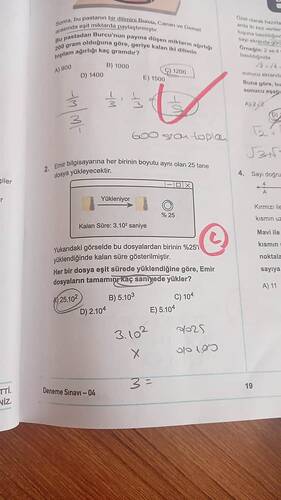 Sonra, bu pastanın bir dilimini Burcu, Canan ve Cemal
arasında eşit miktarda paylaştırmıştır.
Bu pastadan Burcu'nun payına düşen miktarın ağırlığı
200 gram olduğuna göre, geriye kalan iki dilimin
toplam ağırlığı kaç gramdır?
A) 900
B) 1000
C) 1200
D) 1400
E) 1500
1/3
1/3 · 1/3 = 1/9
3/1
600 gram toplam
2. Emir bilgisayarına her birinin boyutu aynı olan 25 tane
dosya yükleyecektir.
Yükleniyor
% 25
Kalan Süre: 3.10² saniye
Yukarıdaki görselde bu dosyalardan birinin %25'i
yüklendiğinde kalan süre gösterilmiştir.
Her bir dosya eşit sürede yüklendiğine göre, Emir
dosyaların tamamını kaç saniyede yükler?
A) 25.10²
B) 5.10³
C) 10⁴
D) 2.10⁴
E) 5.10⁴
3.10² %025
x %100
3 =
Deneme Sınavı - 04
19
4. Sayı doğru
4
A
Kırmızı
kısmın
Mavi
kısmın
nokta
sayıya
A) 11
Özel olarak
Örneğin; 2 ve
basıldığında
Buna göre,
sonucu